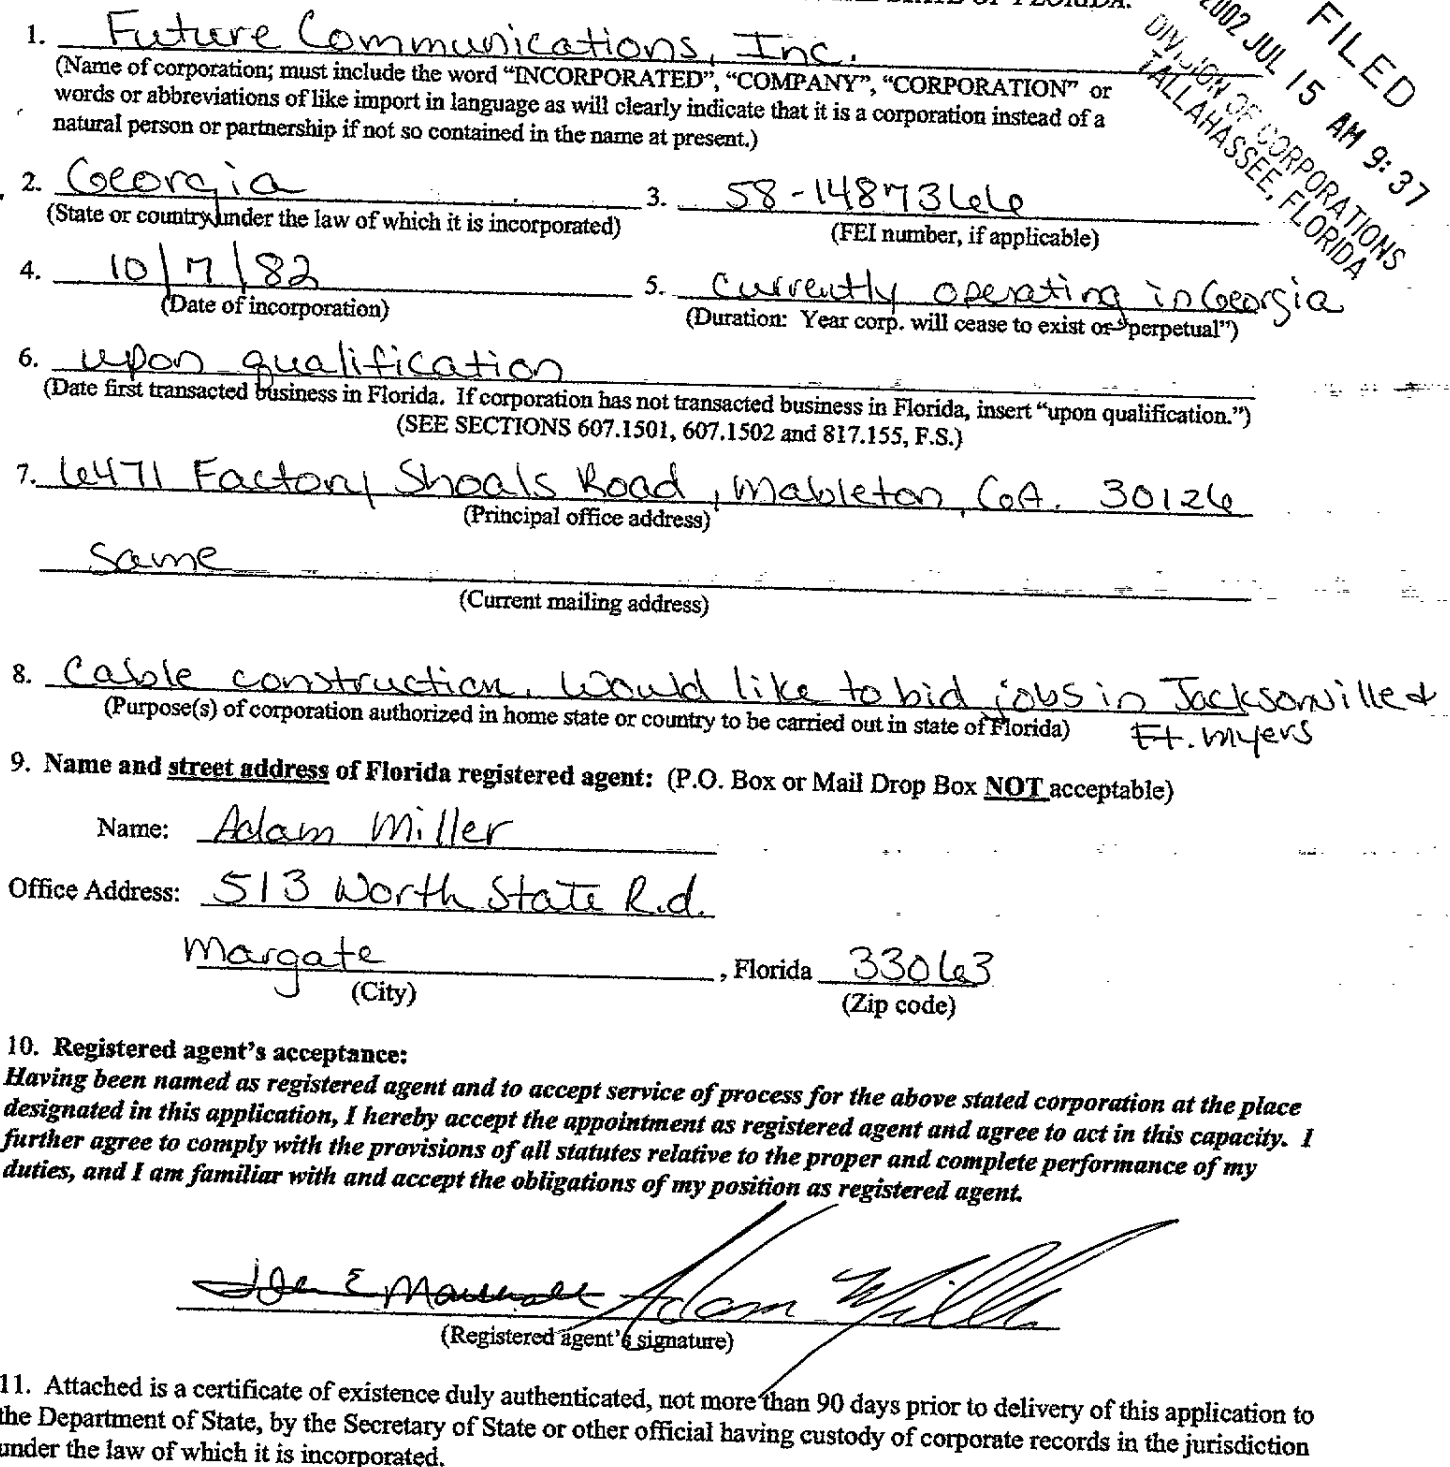 STATE OF FLORIDA.
FILED
2002 JUL 15 AM 9:37
DIVISION OF CORPORATIONS
TALLAHASSEE, FLORIDA
1. Future Communications, Inc.
(Name of corporation; must include the word “INCORPORATED”, “COMPANY”, “CORPORATION” or
words or abbreviations of like import in language as will clearly indicate that it is a corporation instead of a
natural person or partnership if not so contained in the name at present.)
2. Georgia 3. 58-1487366
(State or country under the law of which it is incorporated) (FEI number, if applicable)
4. 10/7/82 5. Currently operating in Georgia
(Date of incorporation) (Duration: Year corp. will cease to exist or “perpetual”)
6. upon qualification
(Date first transacted business in Florida. If corporation has not transacted business in Florida, insert “upon qualification.”)
(SEE SECTIONS 607.1501, 607.1502 and 817.155, F.S.)
7. 6471 Factory Shoals Road, Mableton, GA. 30126
(Principal office address)
Same
(Current mailing address)
8. Cable construction. Would like to bid jobs in Jacksonville &
Ft. Myers
(Purpose(s) of corporation authorized in home state or country to be carried out in state of Florida)
9. Name and street address of Florida registered agent: (P.O. Box or Mail Drop Box NOT acceptable)
Name: Adam Miller
Office Address: 513 North State R.d.
Margate, Florida 33063
(City) (Zip code)
10. Registered agent’s acceptance:
Having been named as registered agent and to accept service of process for the above stated corporation at the place
designated in this application, I hereby accept the appointment as registered agent and agree to act in this capacity. I
further agree to comply with the provisions of all statutes relative to the proper and complete performance of my
duties, and I am familiar with and accept the obligations of my position as registered agent.
Adam Miller
(Registered agent’s signature)
11. Attached is a certificate of existence duly authenticated, not more than 90 days prior to delivery of this application to
the Department of State, by the Secretary of State or other official having custody of corporate records in the jurisdiction
under the law of which it is incorporated.